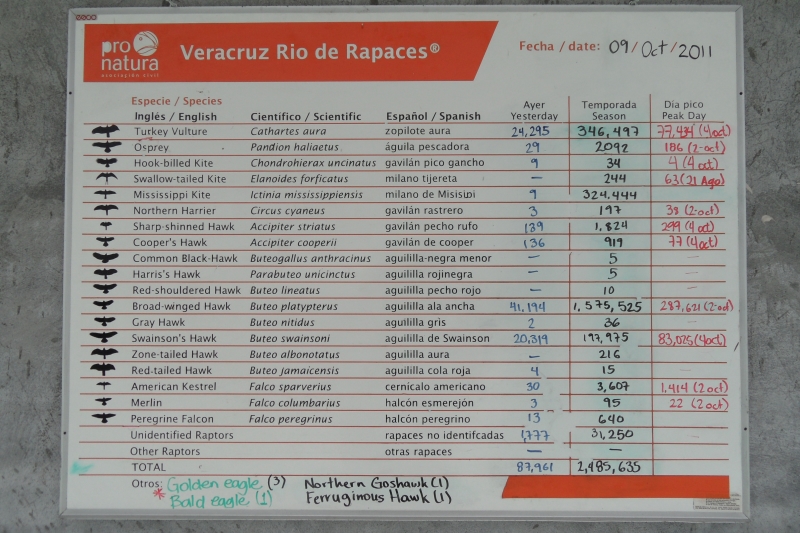 pro natura
asociación civil
Veracruz Rio de Rapaces®
Fecha / date: 09/Oct/2011
Especie / Species
Inglés / English Científico / Scientific Español / Spanish Ayer Yesterday Temporada Season Día pico Peak Day
Turkey Vulture Cathartes aura zopilote aura 24,295 346,497 77,434 (4oct)
Osprey Pandion haliaetus águila pescadora 29 2092 186 (2-oct)
Hook-billed Kite Chondrohierax uncinatus gavilán pico gancho 9 34 4 (4oct)
Swallow-tailed Kite Elanoides forficatus milano tijereta — 244 63 (21 Ago)
Mississippi Kite Ictinia mississippiensis milano de Misisipi 9 324.444
Northern Harrier Circus cyaneus gavilán rastrero 3 197 38 (2-oct)
Sharp-shinned Hawk Accipiter striatus gavilán pecho rufo 139 1,824 299 (4oct)
Cooper's Hawk Accipiter cooperii gavilán de cooper 136 919 77 (4oct)
Common Black-Hawk Buteogallus anthracinus aguililla-negra menor — 5 —
Harris's Hawk Parabuteo unicinctus aguililla rojinegra — 5 —
Red-shouldered Hawk Buteo lineatus aguililla pecho rojo — 10 —
Broad-winged Hawk Buteo platypterus aguililla ala ancha 41,194 1,575,525 287,621 (2-oct)
Gray Hawk Buteo nitidus aguililla gris 2 36
Swainson's Hawk Buteo swainsoni aguililla de Swainson 20,319 197,975 83,025 (4oct)
Zone-tailed Hawk Buteo albonotatus aguililla aura — 216
Red-tailed Hawk Buteo jamaicensis aguililla cola roja 4 15
American Kestrel Falco sparverius cernícalo americano 30 3,607 1,414 (2oct)
Merlin Falco columbarius halcón esmerejón 3 95 22 (2oct)
Peregrine Falcon Falco peregrinus halcón peregrino 13 640
Unidentified Raptors rapaces no identifcadas 1,777 31,250
Other Raptors otras rapaces — —
TOTAL 87,961 2,485,635
Otros: Golden eagle (3) Northern Goshawk (1)
* Bald eagle (1) Ferruginous Hawk (1)